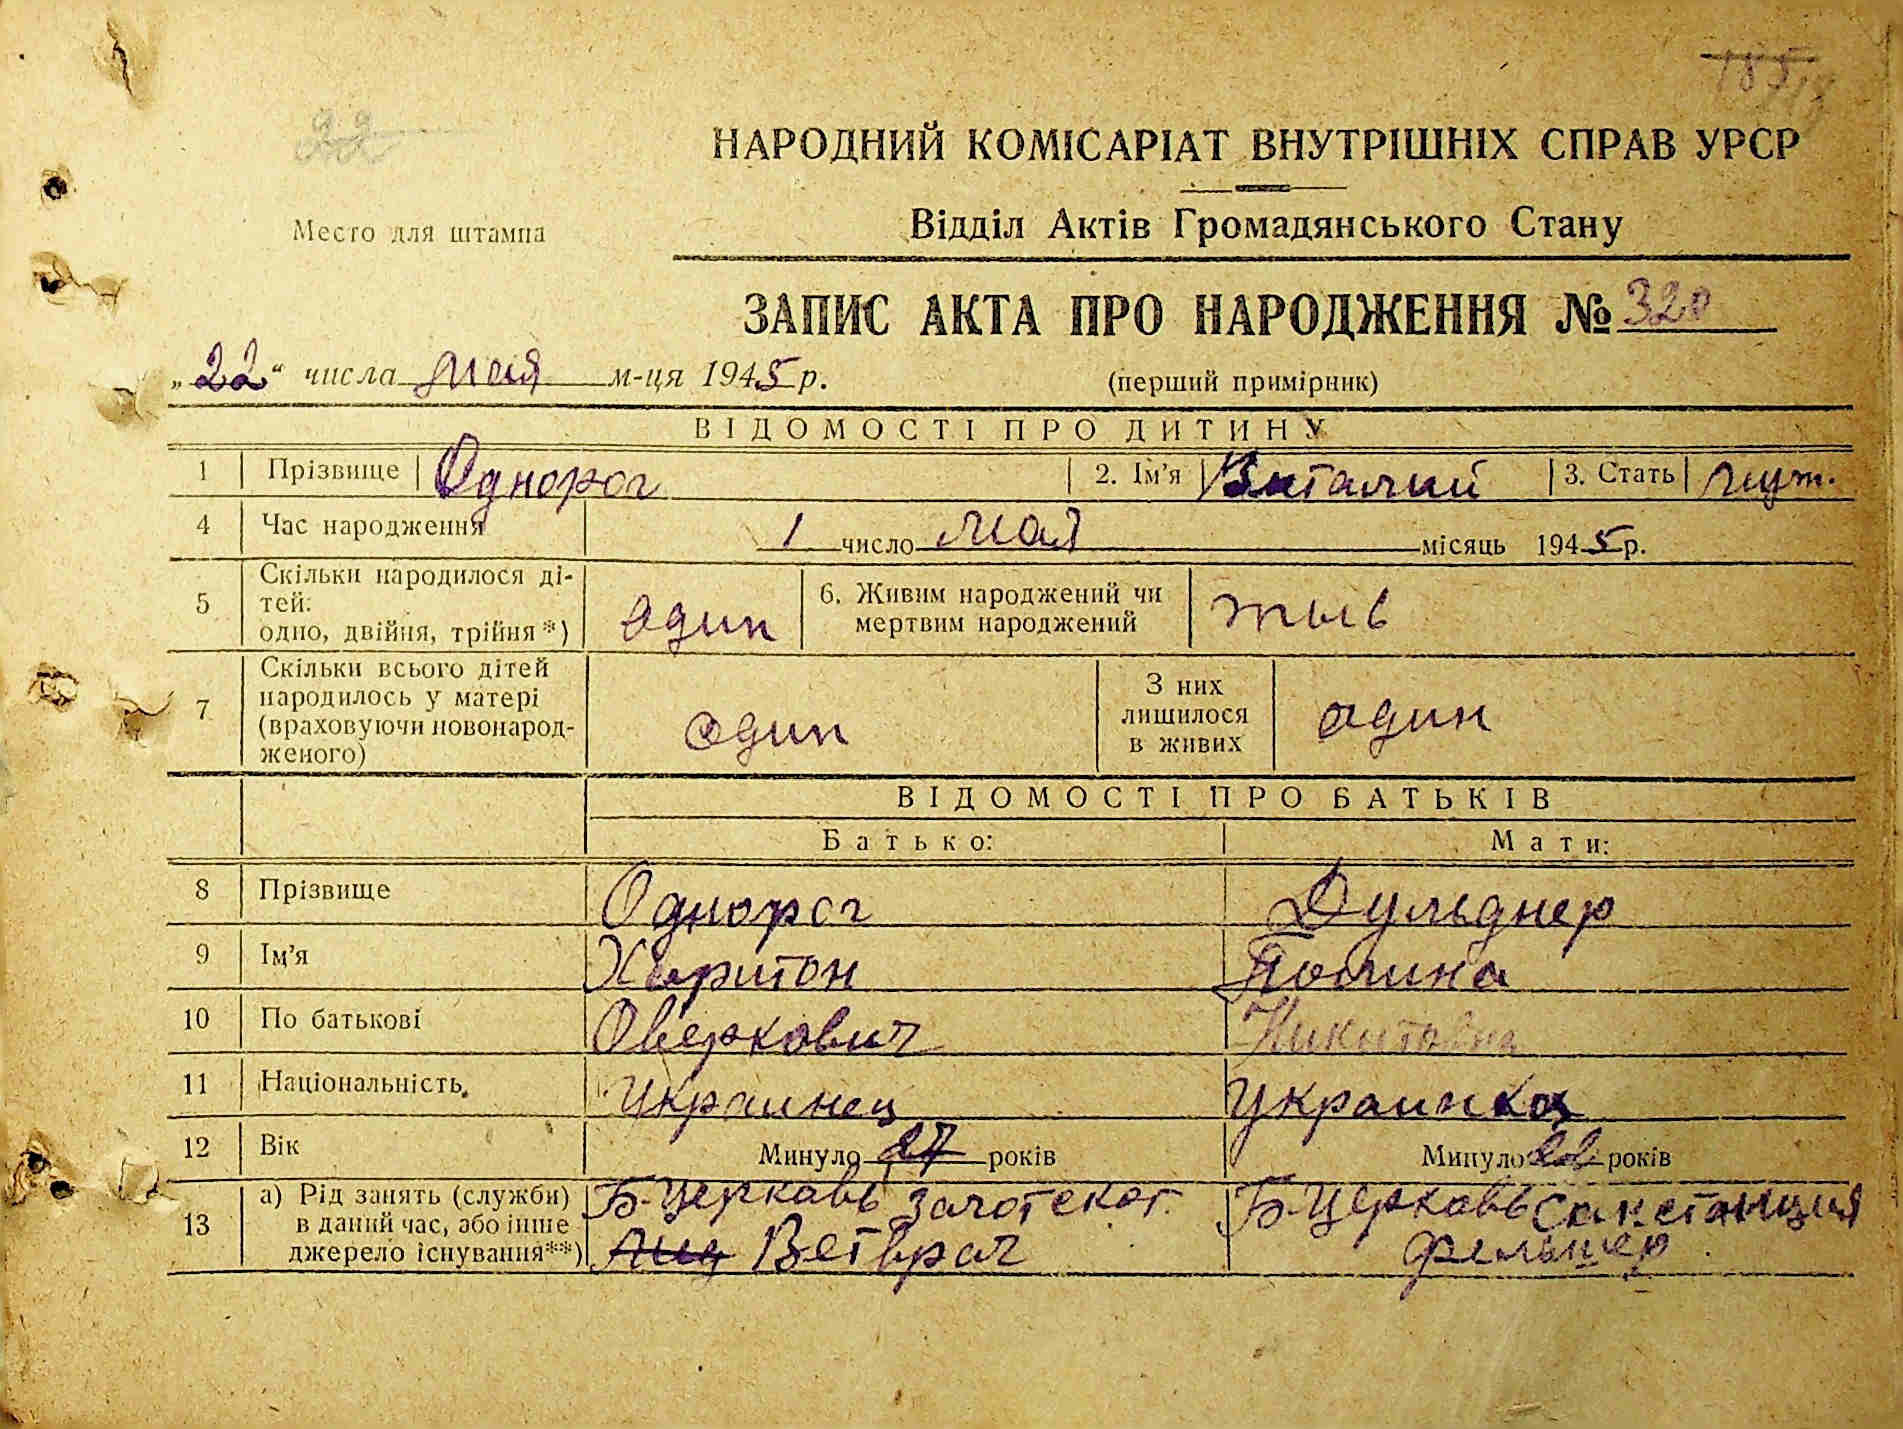 22
НАРОДНИЙ КОМІСАРІАТ ВНУТРІШНІХ СПРАВ УРСР
Место для штампа
Відділ Актів Громадянського Стану
ЗАПИС АКТА ПРО НАРОДЖЕННЯ № 320
„22“ числа мая м-ця 1945 р.
(перший примірник)
ВІДОМОСТІ ПРО ДИТИНУ
1 Прізвище Однорог 2. Ім’я Виталий 3. Стать муж.
4 Час народження 1 число мая місяць 1945 р.
5 Скільки народилося ді-
тей:
одно, двійня, трійня*) один
6. Живим народжений чи
мертвим народжений жыв
7 Скільки всього дітей
народилось у матері
(враховуючи новонарод-
женого) один
З них
лишилося
в живих один
ВІДОМОСТІ ПРО БАТЬКІВ
Батько: Мати:
8 Прізвище Однорог Дульднер
9 Ім’я Харитон Полина
10 По батькові Оверкович Никитовна
11 Національність Украинец Украинка
12 Вік Минуло 27 років Минуло 22 років
13 а) Рід занять (служби)
в даний час, або інше
джерело існування**)
Б-Церковь
Ветврач
Б-Церковь Санстанция
фельшер